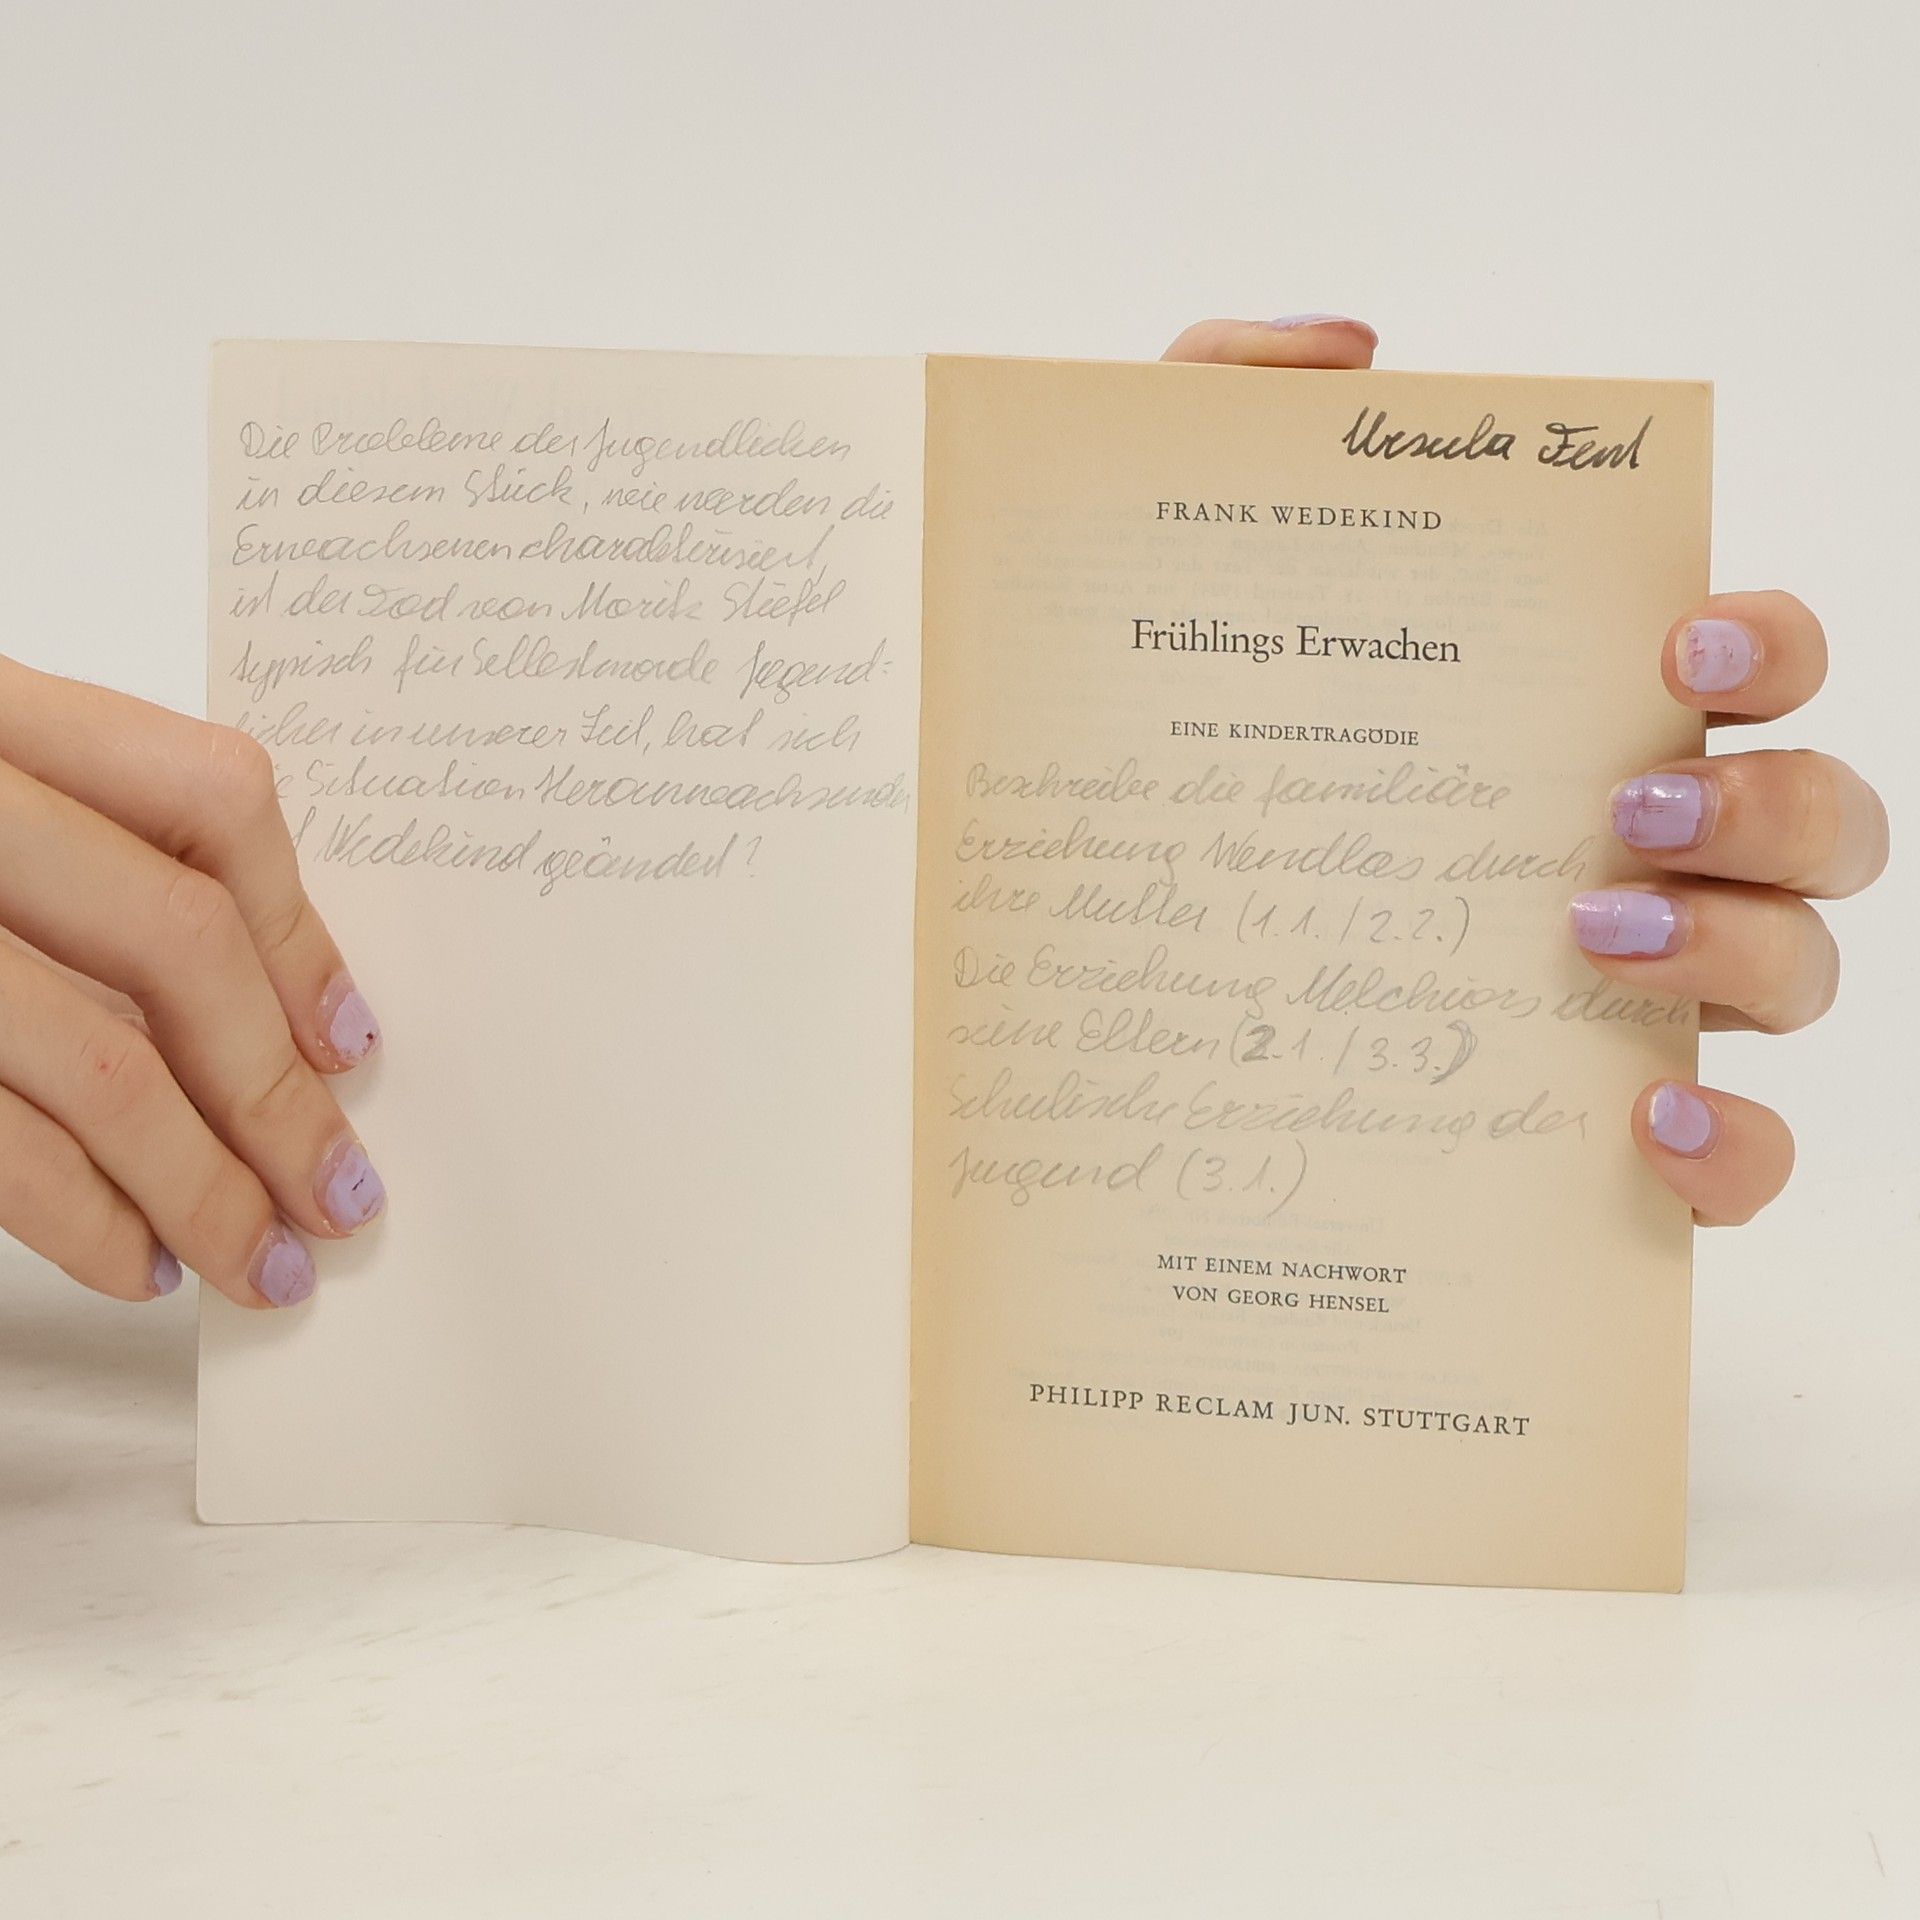 Die Probleme der Jugendlichen
in diesem Stück, wie werden die
Erwachsenen charakterisiert,
ist der Tod von Moritz Stiefel
typisch für Selbstmorde Jugend-
licher in unserer Zeit, hat sich
Situation Heranwachsender
Wedekind geändert?
Ursula
FRANK WEDEKIND
Frühlings Erwachen
EINE KINDERTRAGÖDIE
Beschreibe die familiäre
Erziehung Wendlas durch
ihre Mutter (1.1. / 2.2.)
Die Erziehung Melchiors durch
seine Eltern (2.1. / 3.3.)
Schulische Erziehung der
Jugend (3.1.)
MIT EINEM NACHWORT
VON GEORG HENSEL
PHILIPP RECLAM JUN. STUTTGART